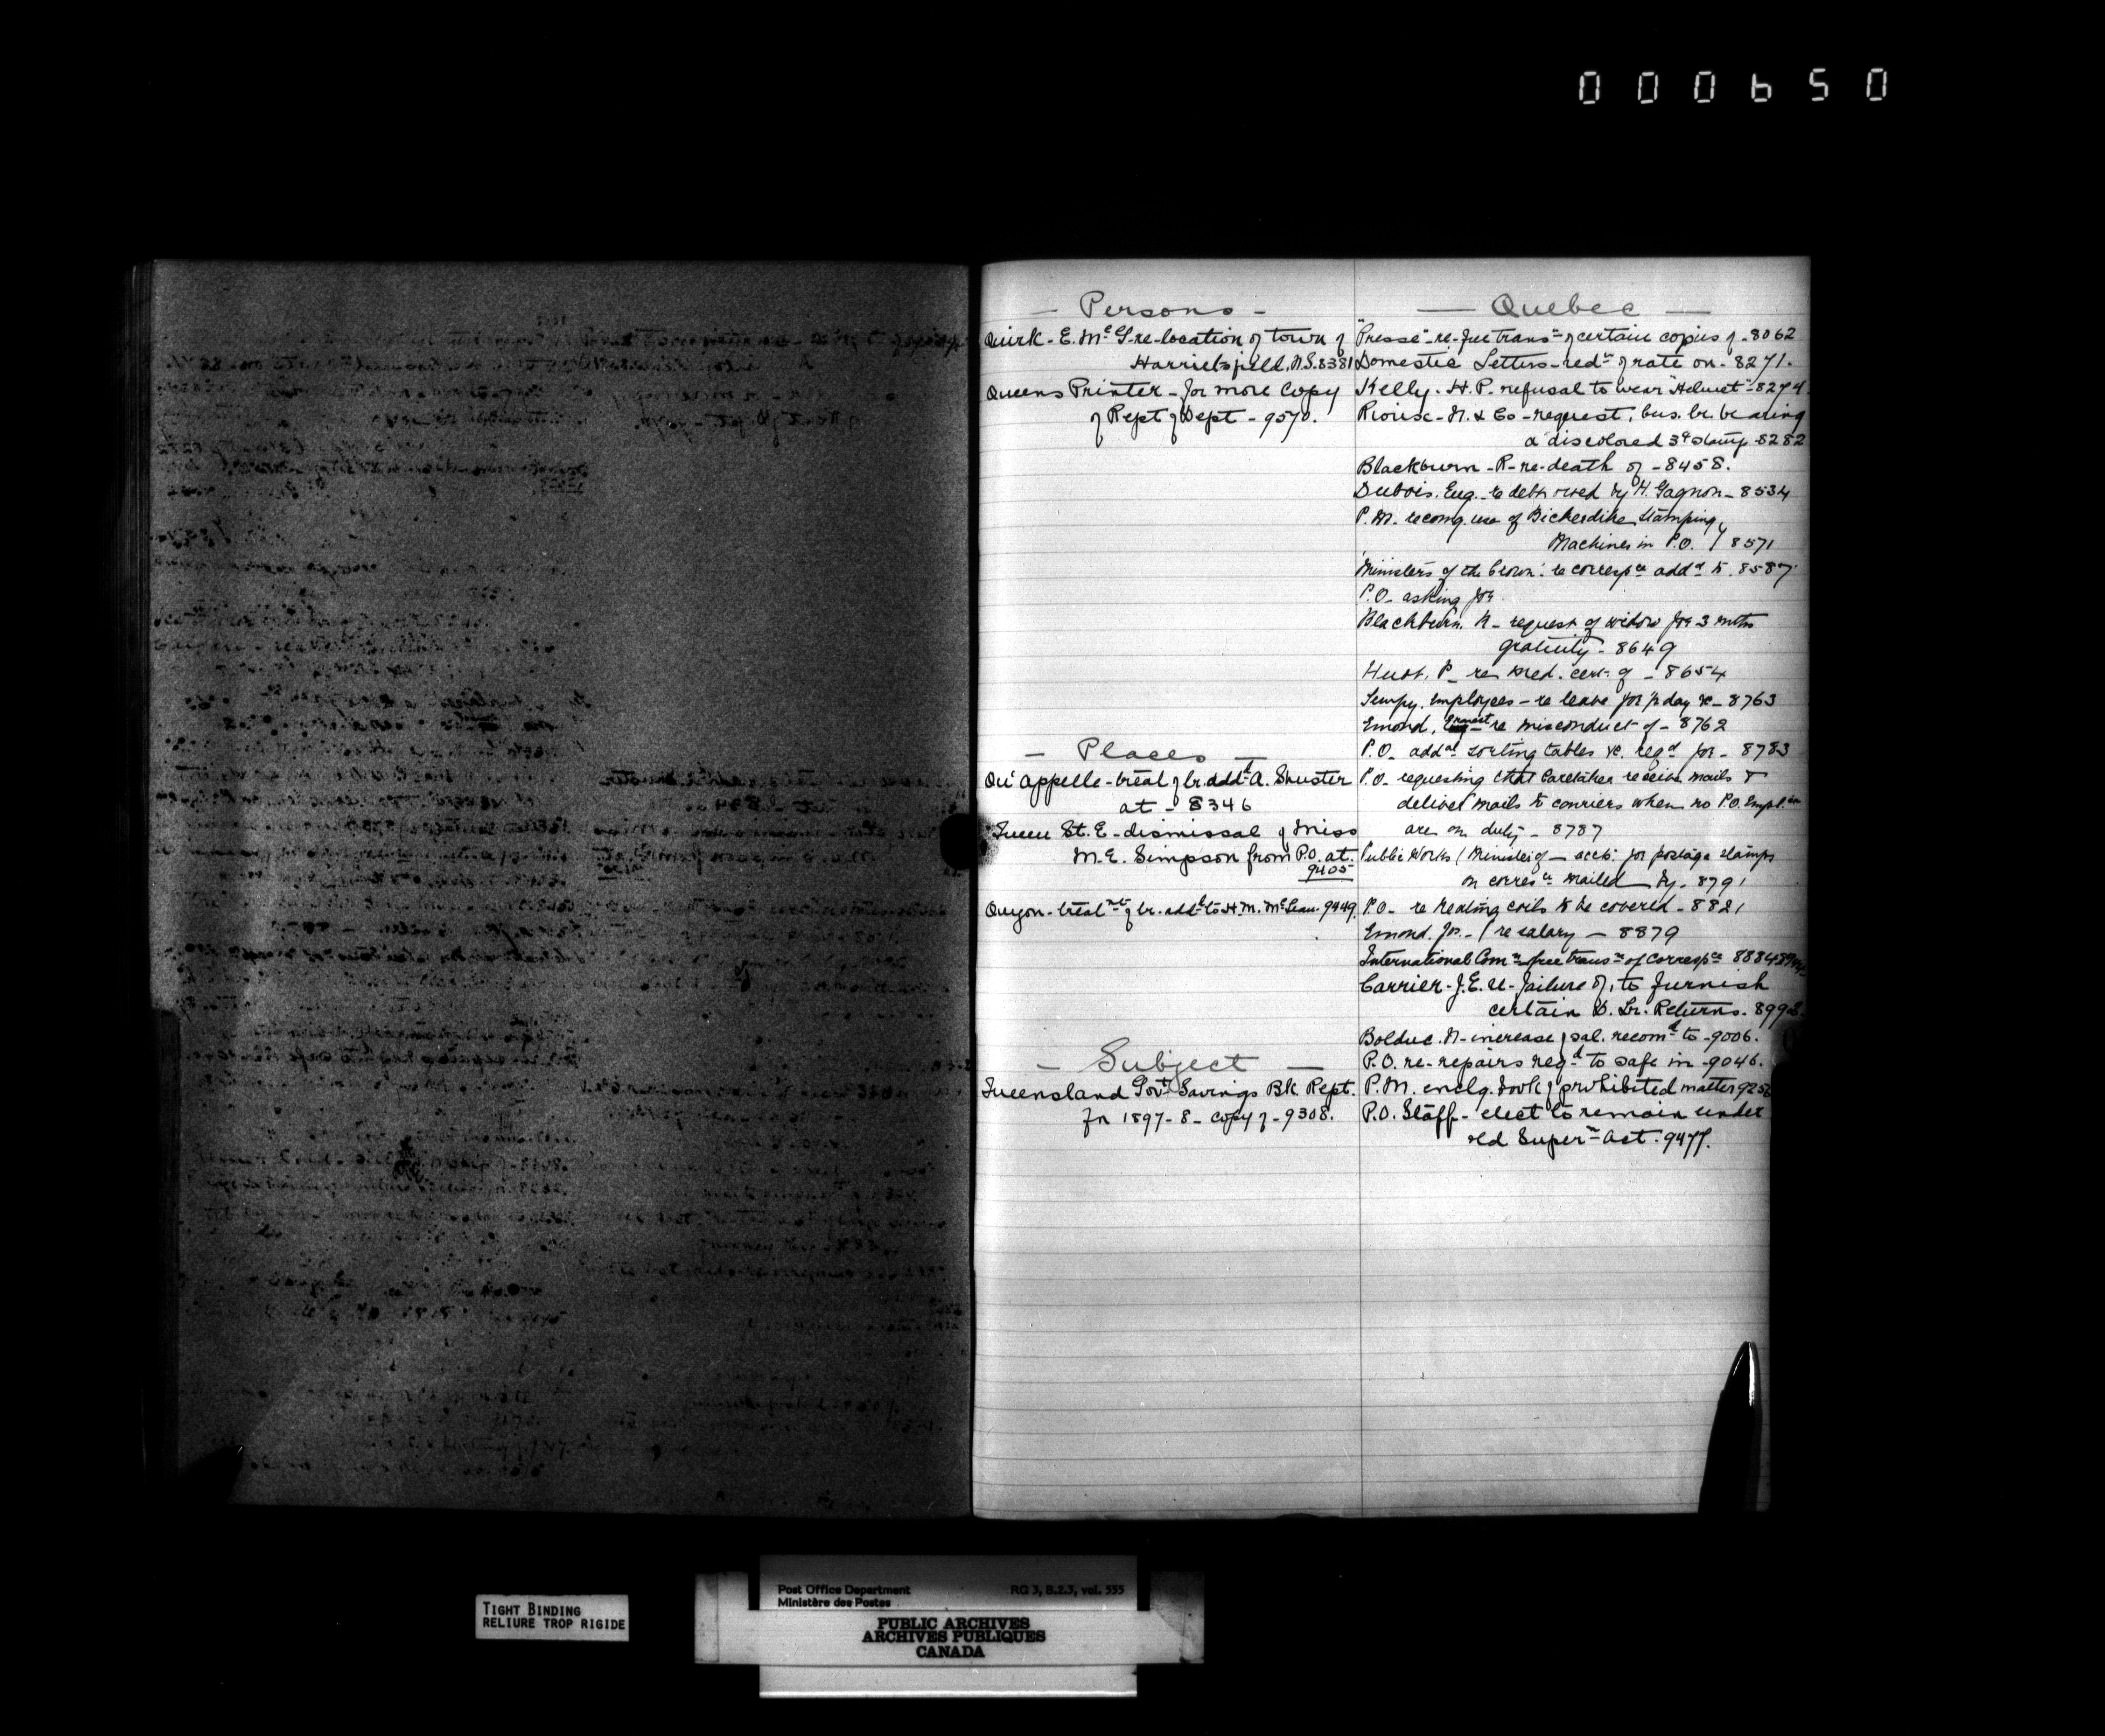 000650
— Persons —
Quirk - E. McG - re - location of town of
Harrietsfield, N.S. 8381
Queens Printer - for more copy
of Rept of Dept - 9570.
— Places —
Qu'appelle - treat of lr. addd A. Shuster
at - 8346
Queen St. E - dismissal of Miss
M. E. Simpson from P.O. at.
9405
Quyon - treatmt of lr. addd to H. M. McLean. 9449.
— Subject —
Queensland Govt Savings Bk Rept.
for 1897-8 - copy of - 9308.
— Quebec —
"Presse" - re - free transn of certain copies of - 8062
Domestic Letters - redn of rate on - 8271.
Kelly. H. P. refusal to wear "Helmet" - 8274.
Rioux - N. & Co - request, bus. lr. bearing
a discolored 3c stamp 8282
Blackburn - R - re - death of - 8458.
Dubois. Eug. - re debt owed by H. Gagnon - 8534
P. M. recomg. use of Bickerdike Stamping
Machines in P.O. / 8571
'Ministers of the Crown' re correspce addd to. 8587
P.O. asking for
Blackburn. R - request of widow for 3 mths
gratuity - 8649
P. re med. cert. of - 8654
Tempy. Employees - re leave for 1/2 day &c - 8763
Emond, Ernest re misconduct of - 8762
P.O. addnl sorting tables &c. reqd for - 8783
P.O. requesting that Caretaker receive mails &
deliver mails to couriers when no P.O.
are on duty - 8787
Public Works (Minister of - acct. for postage stamps
on corresce mailed by - 8791
P.O. - re heating coils to be covered - 8821
Emond. Jos. - / re salary - 8879
International Comn free transn of correspce 8884
Carrier - J. E. re - failure of, to furnish
certain D. Lr. Returns. 899
Bolduc. N - increase of sal. recomd to - 9006.
P.O. re - repairs reqd to safe in - 9046.
P.M. enclg. book of prohibited matter 925
P.O. Staff - elect to remain under
old Supern Act. 9477.
TIGHT BINDING
RELIURE TROP RIGIDE
Post Office Department RG 3, B.2.3, vol. 555
Ministère des Postes
PUBLIC ARCHIVES
ARCHIVES PUBLIQUES
CANADA